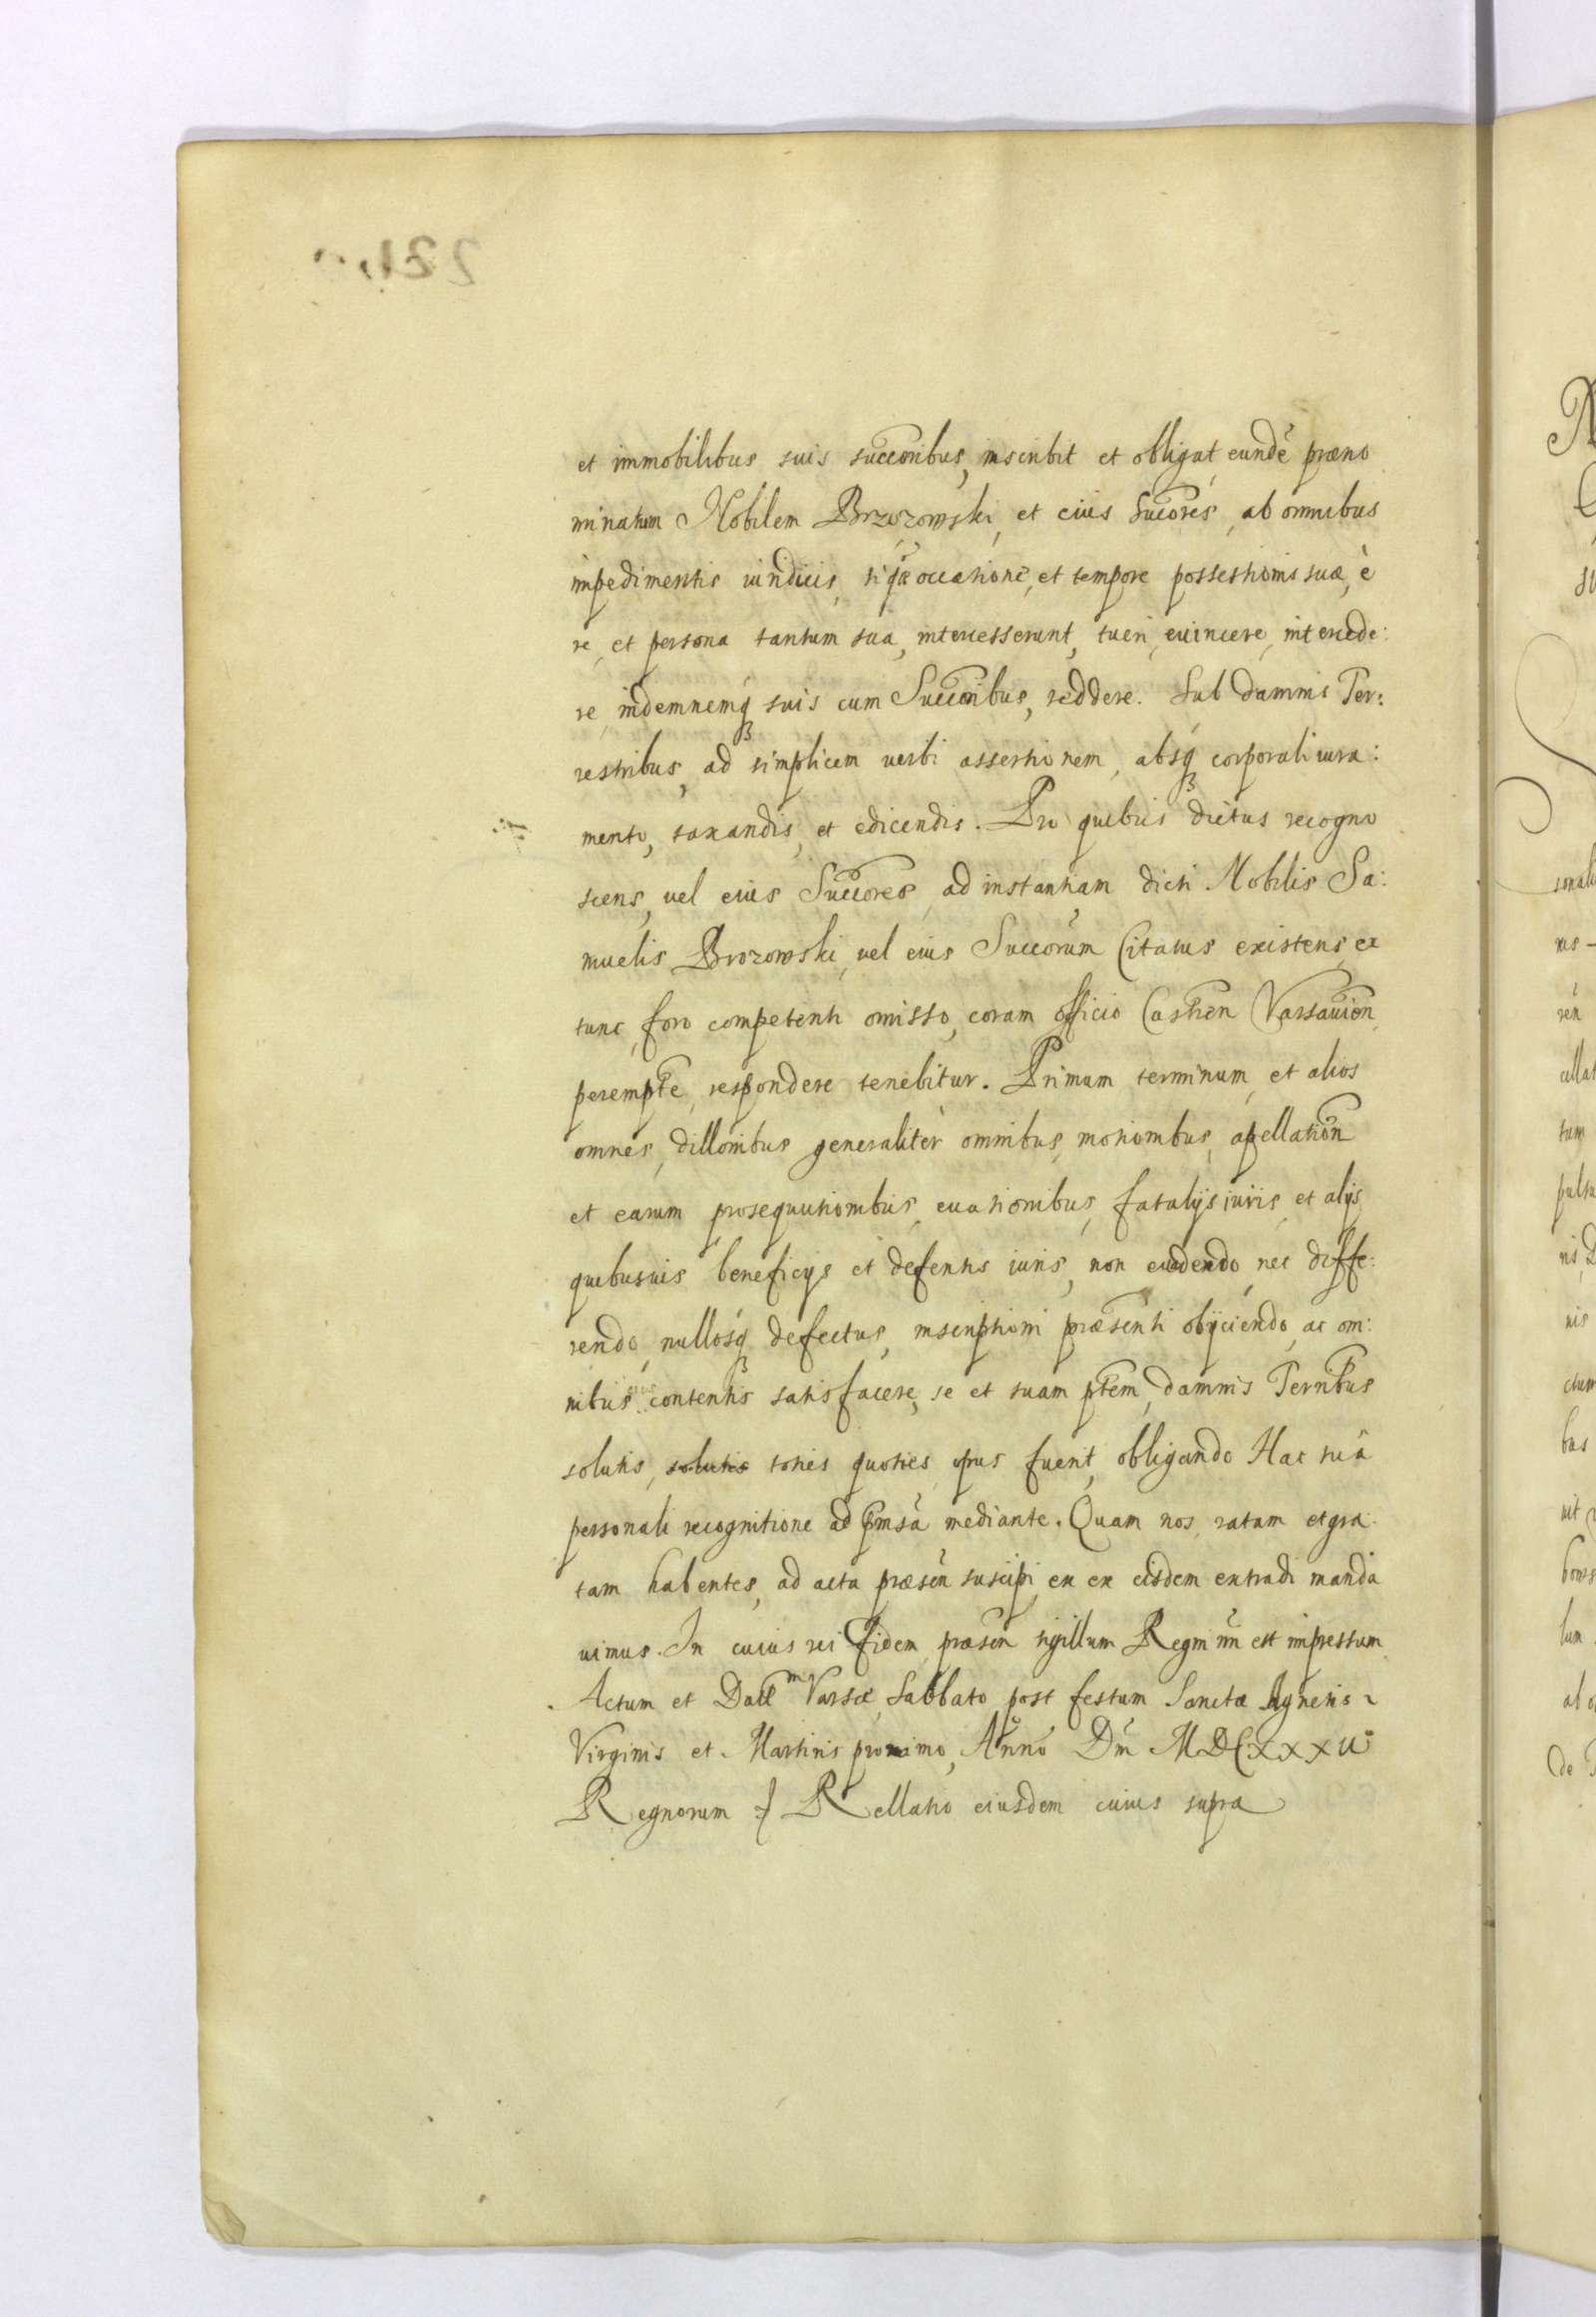 et immobilibus suis succoribus, inscribit et obligat, eundẽ præno
minatum Nobilem Brzozowski, et eius Succores, ab omnibus
impedimentis uindicis, siq̃æ occasione, et tempore possessionis suæ, è
re, et persona tantum sua, intercesserunt, tueri, euincere, intercede:
re, indemnemq́ suis cum Succoribus, reddere. Sub damnis Ter:
restribus, ad simplicem uerbi assertionem, absq́ corporali iura:
mento, taxandis, et edicendis. Pro quibus dictus recogno
scens, uel eius Succores, ad instantiam dicti Nobilis Sa:
muelis Brozowski, uel eius Succorũm Citatus existens, ex
tunc, foro competenti omisso, coram officio Castren Varsauien
perempte, respondere tenebitur. Primum terminum, et alios
omnes, dillonibus generalitèr omnibus, motionibus, apellation
et earum prosequutionibus, euationibus, fatalijs iuris, et alijs
quibusuis beneficijs et defensis iuris, non euadendo, nec diffe:
rendo, nullosq́ defectus, inscriptioni præsenti obijciendo, ac om:
nibus contentis satisfacere, se et suam ptem, damnis Terribus
solutis, solutis toties quoties opus fuerit, obligando Hac suâ
personali recognitione ad pmsã mediante. Quam nos, ratam et gra
tam habentes, ad acta præsen suscipi, ex ex eisdem extradi manda
uimus. In cuius rei fidem, præsen sigillum Regni nri est impressum
Actum et Datt m Varsæ, Sabbato post festum Sanctæ Agnetis
Virginis et Martiris proximo, Anno Dni MDCXXXV
Regnorum :/ Rellatio eiusdem cuius supra